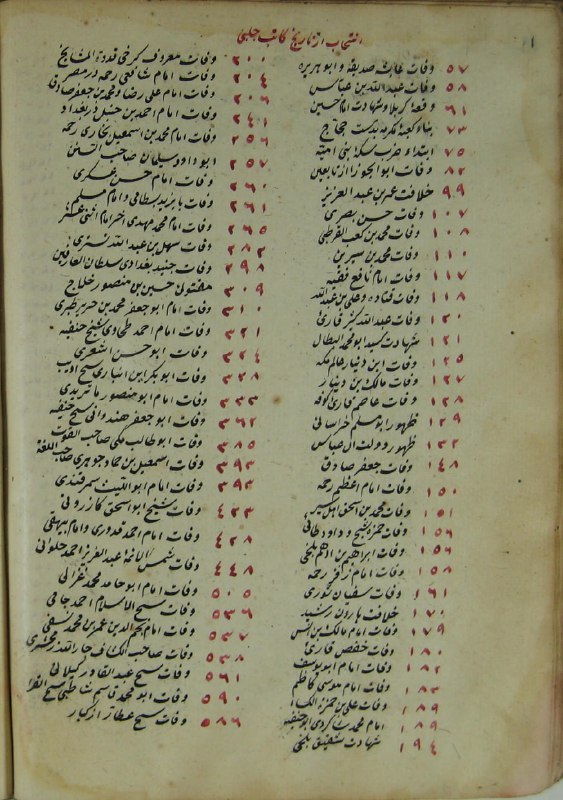 انتخاب از تاریخ کاتب چلبی
٥٧ وفات عایشه صدیقه و ابو هریره
٥٨ وفات عبدالله بن عباس
٦١ وقعۀ کربلا و شهادت امام حسین
٧٣ بناء کعبۀ مکرمه بدست حجاج
٧٥ ابتداء ضرب سکۀ بنی امیه
٨٢ وفات ابو الجوزا از تابعین
٩٩ خلافت عمر بن عبد العزیز
١٠٧ وفات حسن بصری
١٠٨ وفات محمد بن کعب القرظی
١١٠ وفات محمد بن سیرین
١١٧ وفات امام نافع فقیه
١١٨ وفات قتاده و علی بن عبدالله
١٢٠ وفات عبدالله کثیر قاری
١٢١ شهادت سید ابو محمد البطال
١٢٥ وفات ابن دینار عالم مکه
١٢٧ وفات مالک بن دینار
١٢٨ وفات عاصم قاری کوفه
١٢٩ ظهور ابو مسلم خراسانی
١٣٢ ظهور دولت آل عباس
١٤٨ وفات جعفر صادق
١٥٠ وفات امام اعظم رحمه
١٥١ وفات محمد بن اسحق اهل سیر
١٥٦ وفات حمزه شیخ و داود طائی
١٥٦ وفات ابراهیم بن ادهم بلخی
١٥٨ وفات امام زفر رحمه
١٦١ وفات سفیان ثوری
١٧٠ خلافت هارون رشید
١٧٩ وفات امام مالک بن انس
١٨٠ وفات حفص قاری
١٨٢ وفات امام ابو یوسف
١٨٣ وفات امام موسی کاظم
١٨٩ وفات علی بن حمزه الکسا
١٨٩ امام محمد شاکرد ابو حنیفه
١٩٤ شهادت شقیق بلخی
٢٠٠ وفات معروف کرخی قدوة المشایخ
٢٠٤ وفات امام شافعی رحمه در مصر
٢٠٦ وفات امام علی رضا و محمد بن جعفر صادق
٢٤١ وفات امام احمد بن حنبل در بغداد
٢٥٦ وفات امام محمد بن اسمعیل بخاری رحمه
٢٥٧ ابو داود سلیمان صاحب السنن
٢٦٠ وفات امام حسن عسکری
٢٦١ وفات بایزید بسطامی و امام مسلم
٢٦٥ وفات امام محمد مهدی آخر امام اثنی عشر
٢٨٢ وفات سهل بن عبد الله تستری
٢٩٨ وفات جنید بغدادی سلطان العارفین
٣٠٩ مقتول حسین بن منصور حلاج
٣١٠ وفات امام ابو جعفر محمد بن جریر طبری
٣٢١ وفات امام احمد طحاوی شیخ حنفیه
٣٢٤ وفات ابو حسن اشعری
٣٢٨ وفات ابو بکر ابن انباری شیخ ادیب
٣٣٣ وفات امام ابو منصور ماتریدی
٣٦٢ وفات ابو جعفر هندوانی شیخ حنیفه
٣٨٥ وفات ابو طالب مکی صاحب القوت
٣٩٣ وفات اسمعیل بن حماد جوهری صاحب اللغة
٣٩٣ وفات امام ابو اللیث سمرقندی
٤٢٣ وفات شیخ ابو اسحق کازرونی
٤٢٨ وفات امام احمد قدوری و امام بیهقی
٤٤٨ وفات شمس الائمه عبد العزیز احمد حلوانی
٥٠٥ وفات امام ابو حامد محمد غزالی
٥٣٦ وفات شیخ الاسلام احمد جامی
٥٣٧ وفات امام نجم الدین عمر بن محمد نسفی
٥٣٨ وفات صاحب الکشاف جار الله زمخشری
٥٦١ وفات شیخ عبد القادر کیلانی
٥٩٠ وفات ابو محمد قاسم شاطبی شیخ القرا
٥٨٦ وفات شیخ عطار از کبار